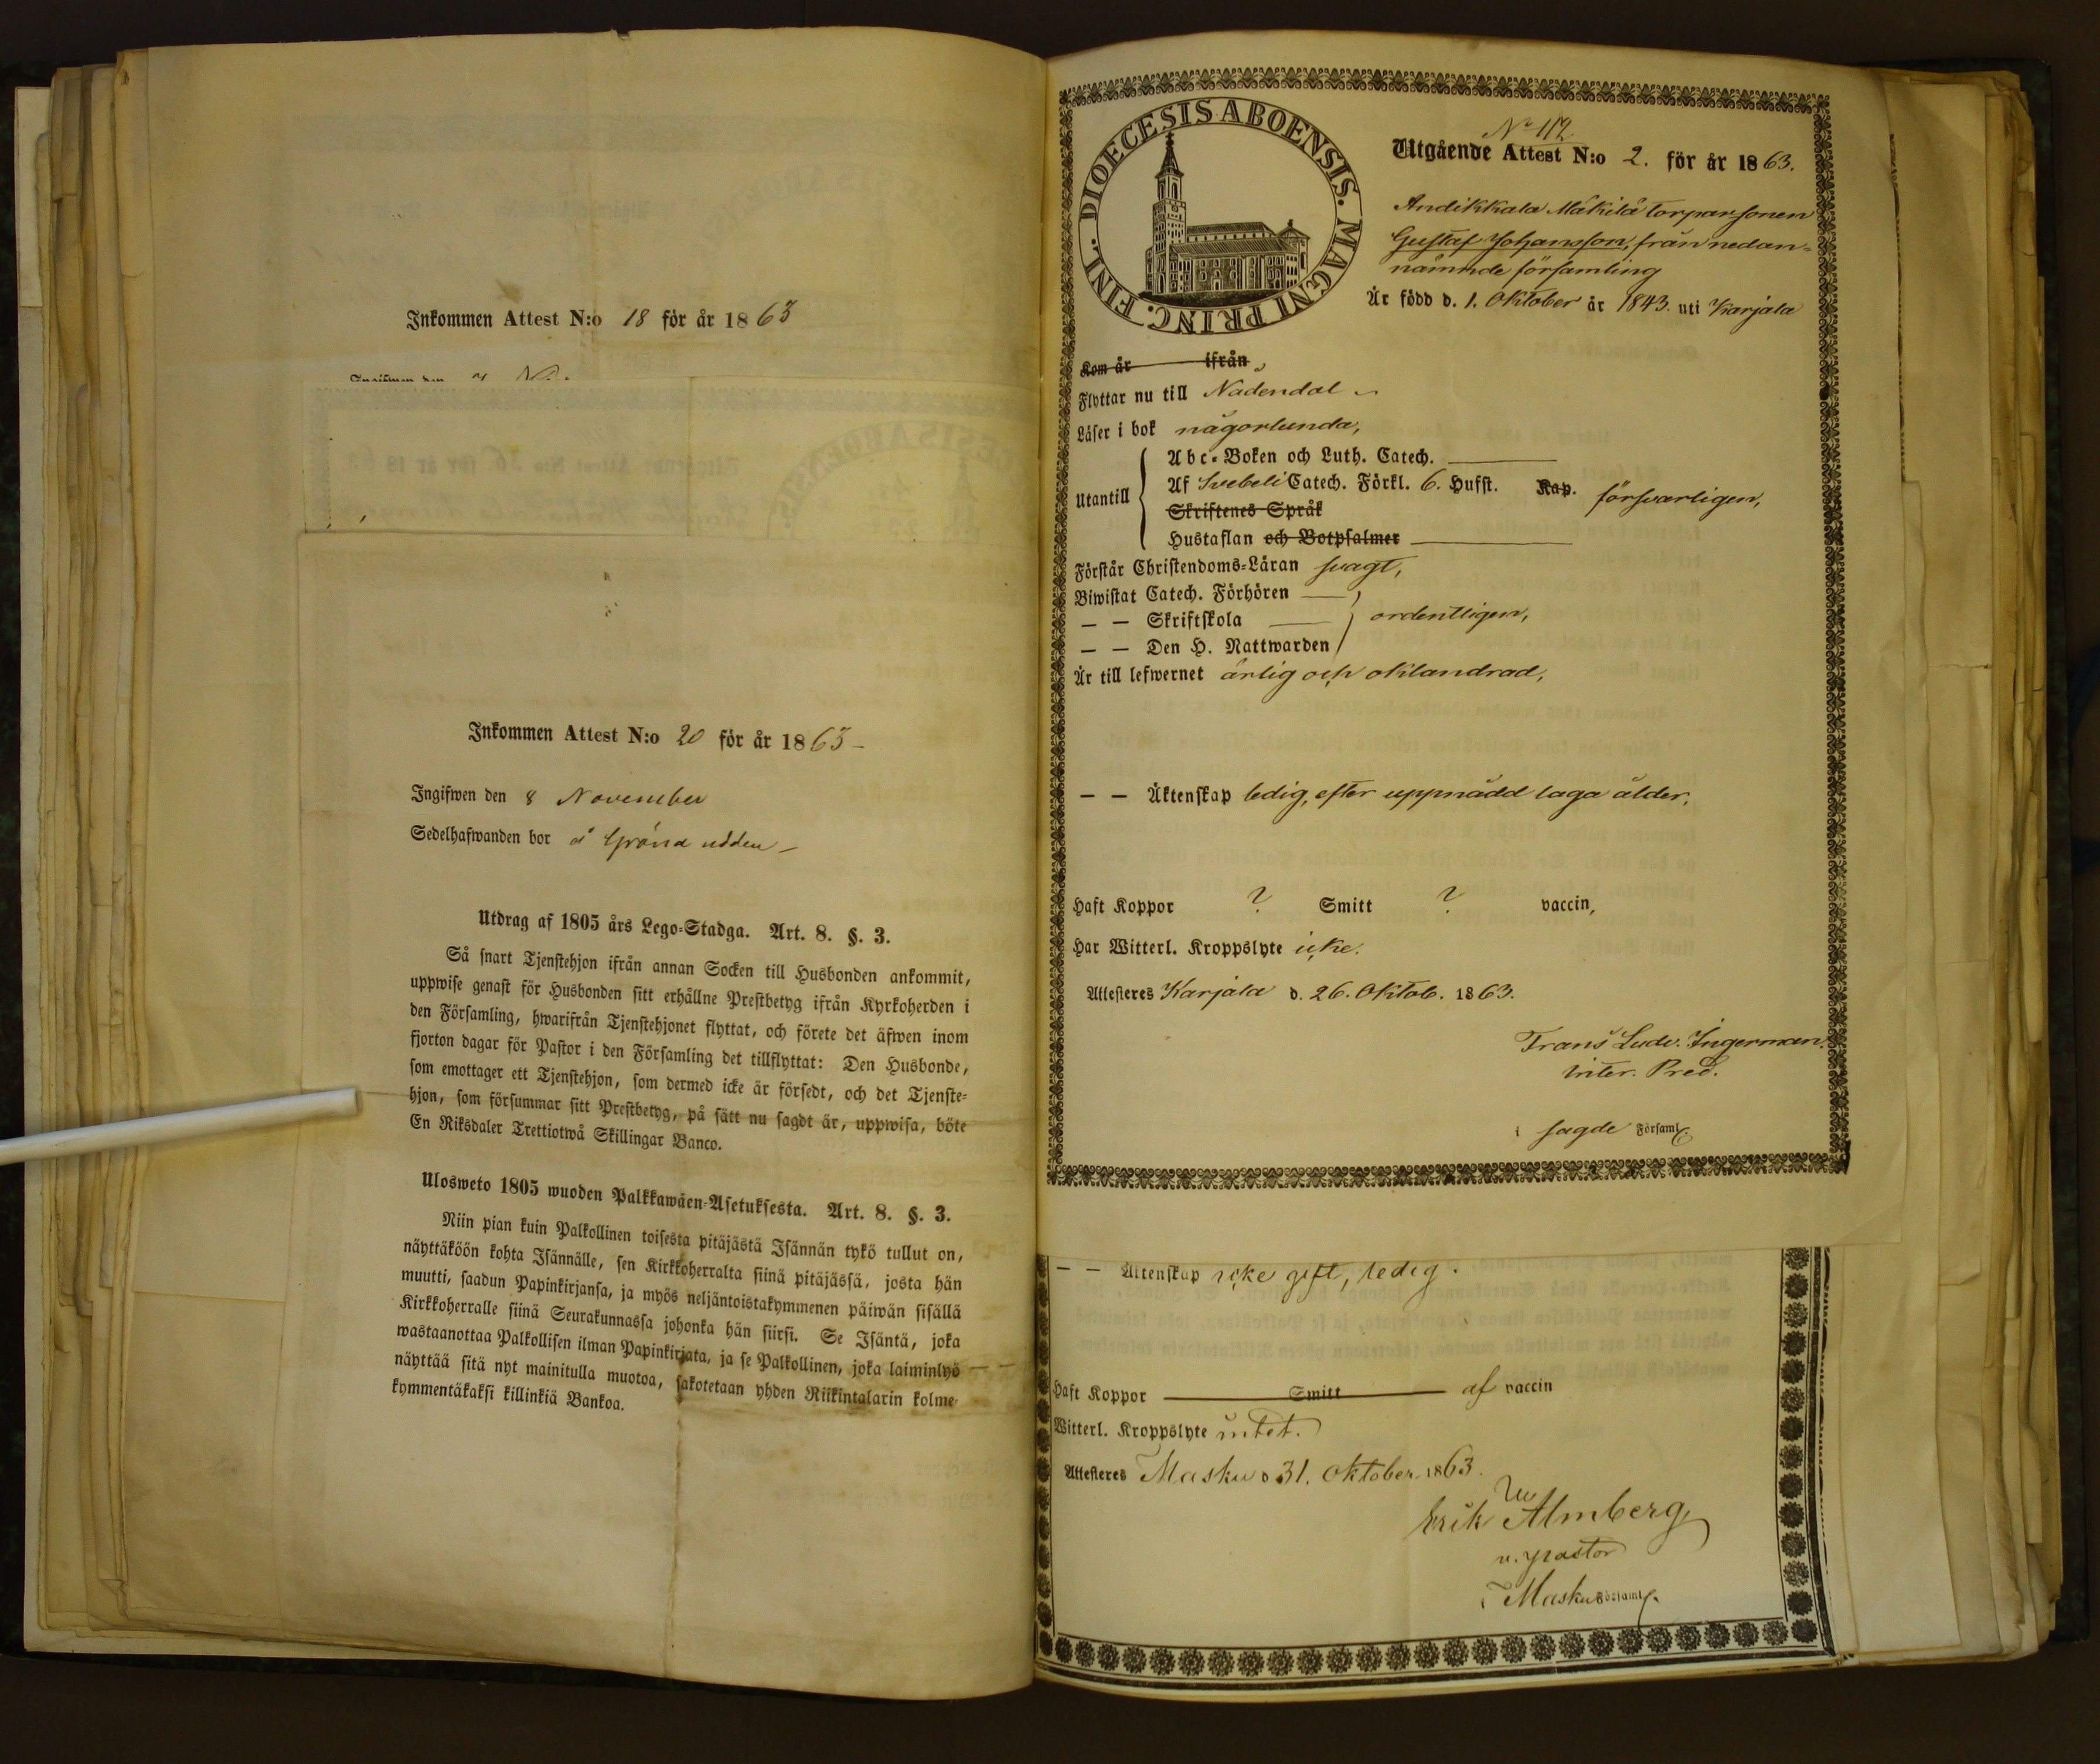 Inkommen Attest N:o 18 för år 1863
Inkommen Attest N:o 20 för år 1863 –
Ingifwen den 8 November
Sedelhafwanden bor å Gröna udden –
Utdrag af 1805 års Lego-Stadga. Art. 8. §. 3.
Så snart Tjenstehjon ifrån annan Socken till Husbonden ankommit,
uppwise genast för Husbonden sitt erhållne Prestbetyg ifrån Kyrkoherden i
den Församling, hwarifrån Tjenstehjonet flyttat, och förete det äfwen inom
fjorton dagar för Pastor i den Församling det tillflyttat: Den Husbonde,
som emottager ett Tjenstehjon, som dermed icke är försedt, och det Tjenste-
hjon, som försummar sitt Prestbetyg, på sätt nu sagdt är, uppwisa, böte
En Riksdaler Trettiotwå Skillingar Banco.
Ulosweto 1805 wuoden Palkkawäen-Asetuksesta. Art. 8. §. 3.
Niin pian kuin Palkollinen toisesta pitäjästä Isännän tykö tullut on,
näyttäköön kohta Isännälle, sen Kirkkoherralta siinä pitäjässä, josta hän
muutti, saadun Papinkirjansa, ja myös neljäntoistakymmenen päiwän sisällä
Kirkkoherralle siinä Seurakunnassa johonka hän siirsi. Se Isäntä, joka
wastaanottaa Palkollisen ilman Papinkirjata, ja se Palkollinen, joka laiminlyö
näyttää sitä nyt mainitulla muotoa, sakotetaan yhden Riikintalarin kolme-
kymmentäkaksi killinkiä Bankoa.
DIOECESIS ABOENSIS. MAGNI PRINC. FINL.
No 112
Utgående Attest N:o 2. för år 1863.
Andikkala Mäkilä torparsonen
Gustaf Johansson, från nedan-
nämnde församling
Är född d. 1. Oktober år 1843. uti Karjala
Kom år ifrån
Flyttar nu till Nadendal
Läser i bok någorlunda,
Utantill
Abc-Boken och Luth. Catech.
Af Svebeli Catech. Förkl. 6. Hufst. Kap. försvarligen,
Skriftenes Språk
Hustaflan och Botpsalmer
Förstår Christendoms-Läran svagt,
Biwistat Catech. Förhören
— — Skriftskola ordentligen,
— — Den H. Nattwarden
Är till lefwernet ärlig och oklandrad,
— — Äktenskap ledig, efter uppnådd laga ålder,
Haft Koppor ? Smitt ? vaccin,
Har Witterl. Kroppslyte icke.
Attesteres Karjala d. 26. Oktob. 1863.
Frans Ludv. Ingerman.
inter. Pred.
i sagde Församl.
— — Äktenskap icke gift, ledig.
Haft Koppor Smitt af vaccin
Witterl. Kroppslyte intet.
Attesteres Masku d 31. Oktober 1863.
Erik Wm Almberg
v. pastor
i Masku Församl.